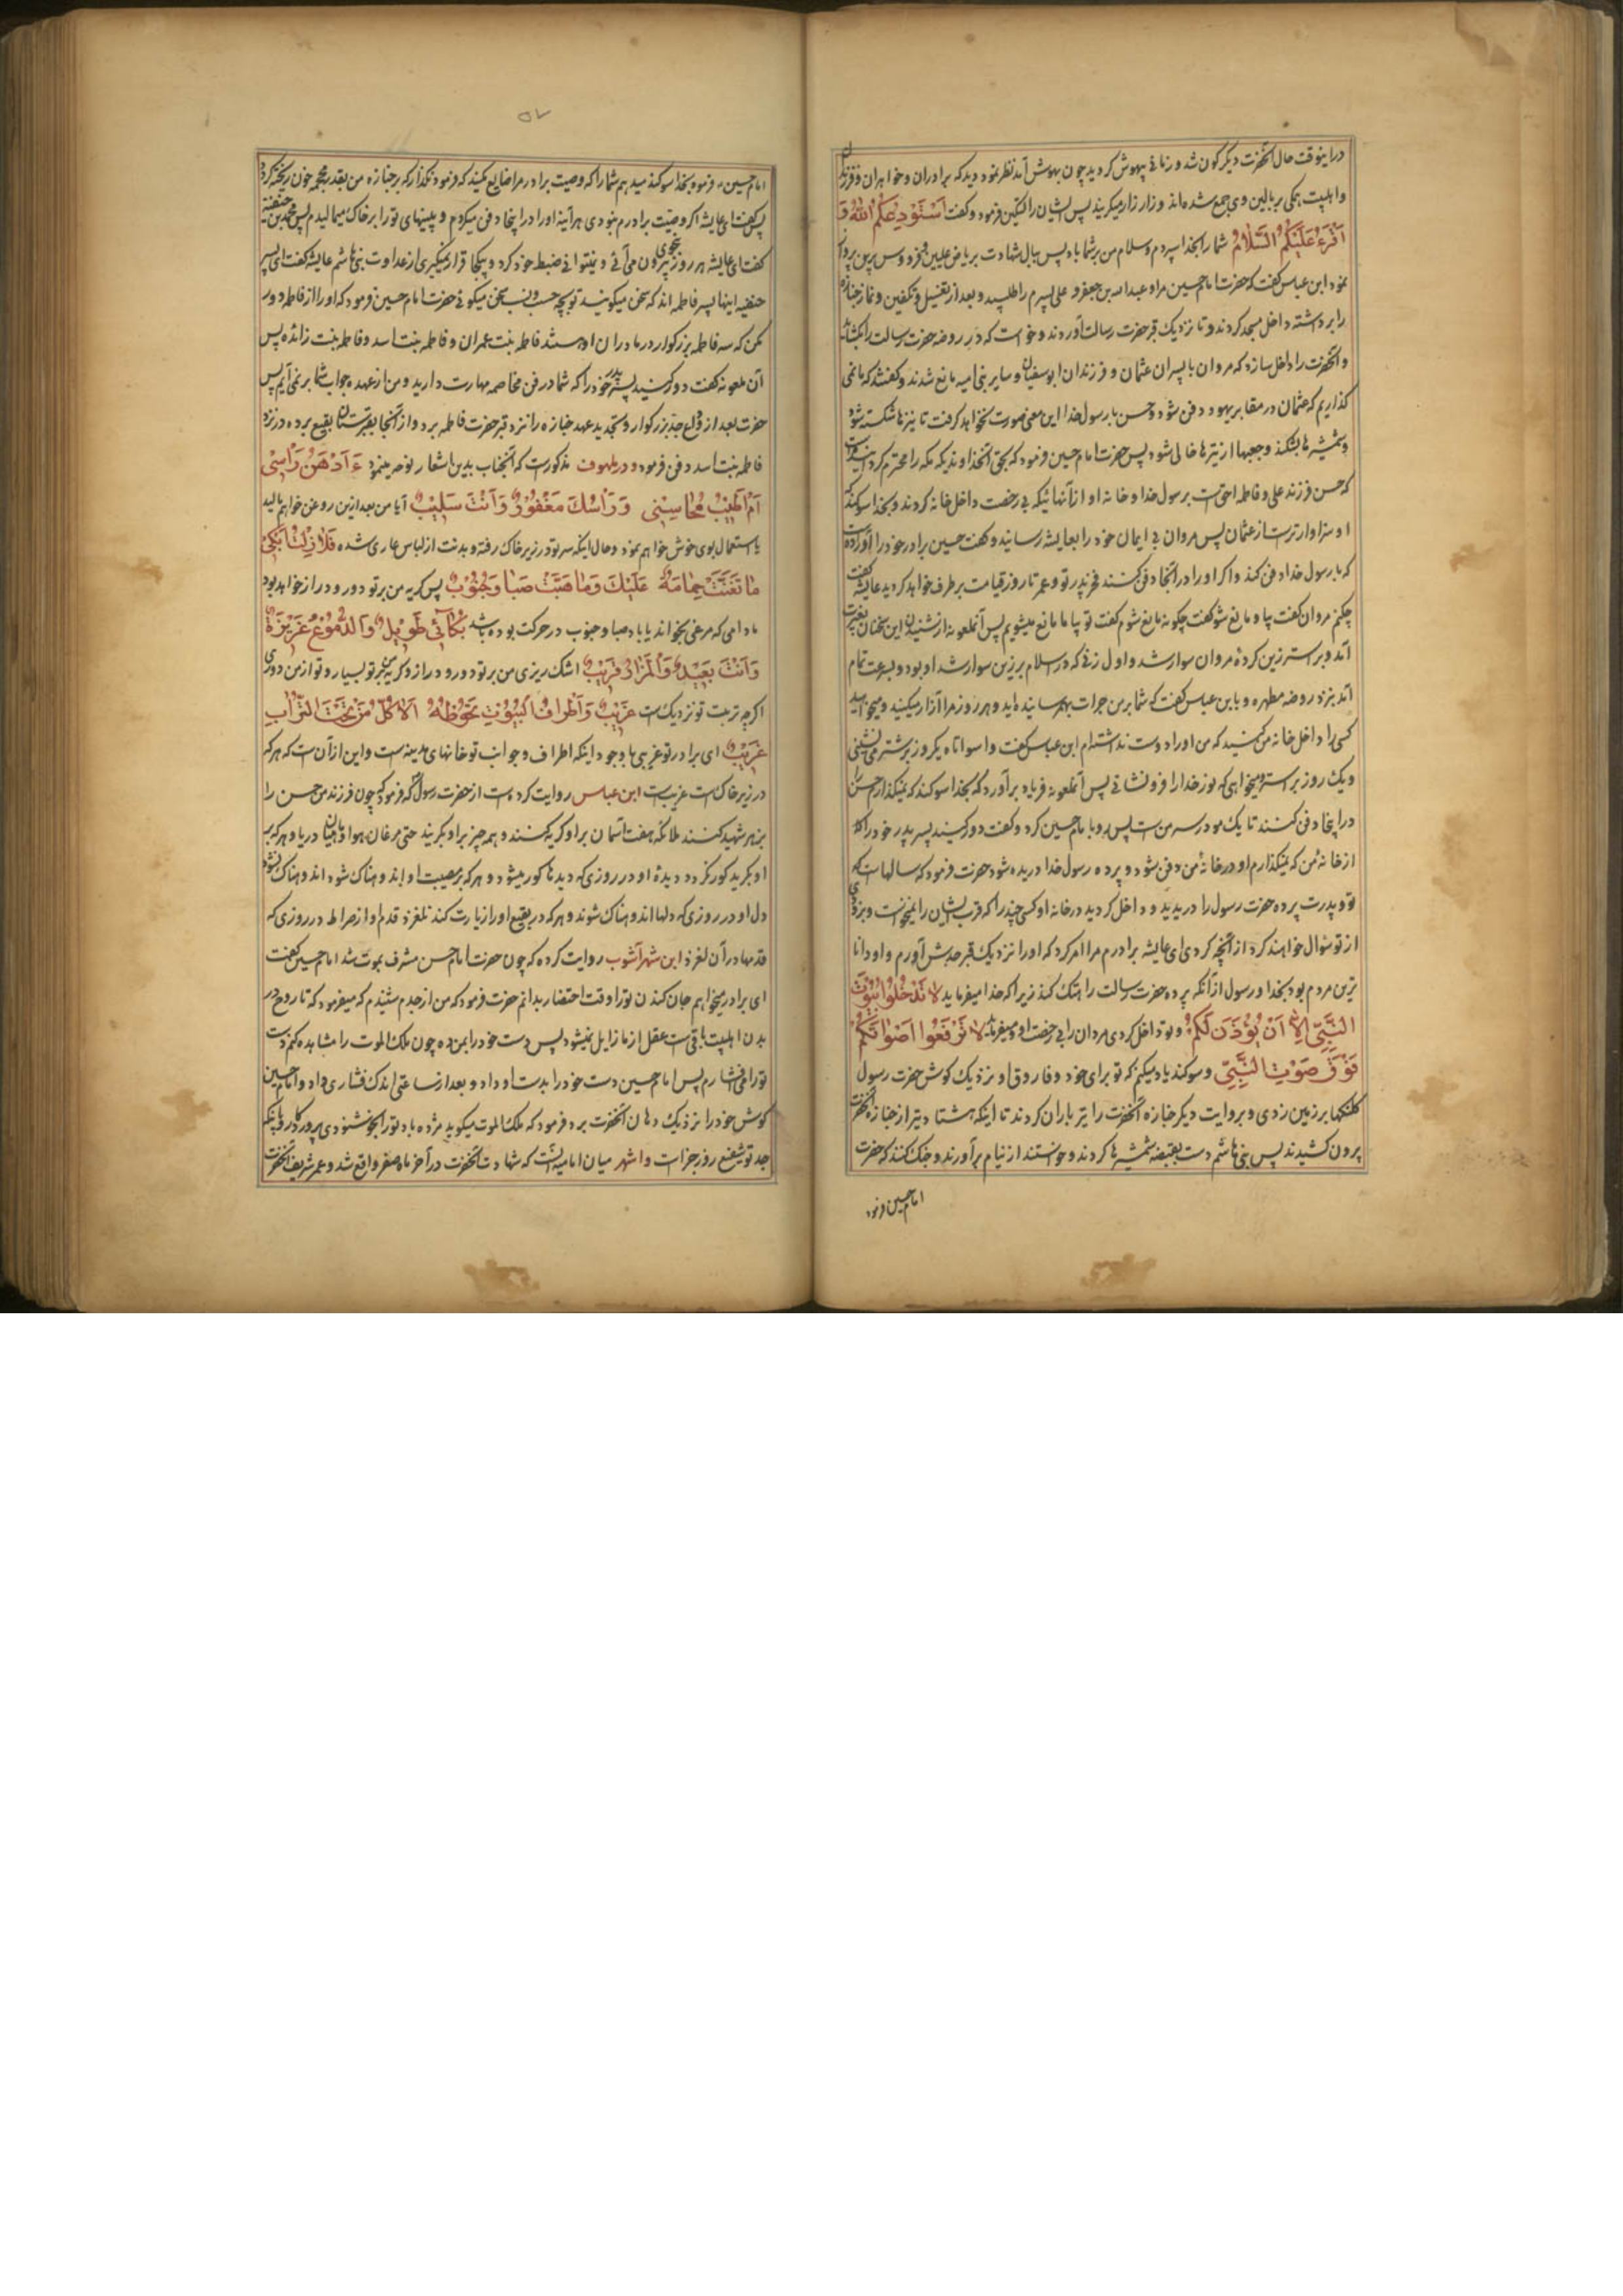 در اینوقت حال آنحضرت دیگر کون شد و زمانی بیهوش کردید چون بهوش آمد نظر نمود دید که برادران و خواهران و فرزندان
و اهلبیت همکی بر بالین وی جمع شده‌اند و زار زار میکریند پس ایشان را تسکین فرمود و کفت اَسْتَوْدِعُکُمُ اللهُ وَ
اَقْرَءُ عَلَیْکُمُ السَّلامُ شما را بخدا سپردم و سلام من بر شما باد پس ببال شهادت بریاض علیین و فردوس برین پرواز
نمود ابن عباس کفت که حضرت امام حسین مرا و عبدالله بن جعفر و علی پسرم را طلبید و بعد از تغسیل و تکفین و نماز جنازه
را برداشته داخل مسجد کردند و تا نزدیک قبر حضرت رسالت آوردند و خواست که در روضه حضرت رسالت را بکشاید
و آنحضرت را داخل سازد که مروان با پسران عثمان و فرزندان ابوسفیان و سایر بنی امیه مانع شدند و کفتند که ما نمی
کذاریم که عثمان در مقابر یهود دفن شود و حسن با رسول خدا این معنی صورت نخواهد کرفت تا نیزها شکسته شود
و شمشیرها بشکند و جعبها از تیرها خالی شود پس حضرت امام حسین فرمود که بحق آنخداوندیکه مکه را محترم کردانیده است
که حسن فرزند علی و فاطمه احق است برسول خدا و خانه او از آنهائیکه بی رخصت داخل خانه کردند و بخدا سوکند که
او سزاوارتر است از عثمان پس مروان بی ایمان خود را بعایشه رسانید و کفت حسین برادر خود را آورده است
که با رسول خدا دفن کند و اکر او را در آنجا دفن کنند فخر پدر تو و عمر تا روز قیامت بر طرف خواهد کردید عایشه کفت
چکنم مروان کفت بیا و مانع شو کفت چکونه مانع شوم کفت تو بیا ما مانع میشویم پس آنملعونه از شنیدن این سخنان بغیرت
آمد و بر استر زین کرده مروان سوار شد و اول زنی که در اسلام بر زین سوار شد او بود و بسرعت تمام
آمد بنزد روضه مطهره و با ابن عباس کفت که شما بر من جرات بهم رسانیده‌اید و هر روز مرا آزار میکنید و میخواهید
کسی را داخل خانه من کنید که من او را دوست نداشته‌ام ابن عباس کفت واسواتاه یکروز بر شتر می نشینی
و یک روز بر استر و میخواهی که نور خدا را فرو نشانی پس آنملعونه فریاد بر آورد که بخدا سوکند که نمیکذارم حسن را
در اینجا دفن کنند تا یک مو در سر من است پس رو بامام حسین کرد و کفت دور کنید پسر پدر خود را
از خانه من که نمیکذارم او در خانه من دفن شود و پرده رسول خدا دریده شود حضرت فرمود که سالهاست که
تو و پدرت پرده حضرت رسول را دریدید و داخل کردید در خانه او کسی چند را که قرب ایشان را نمیخواست و بزودی
از تو سؤال خواهند کرد از آنچه کردی ای عایشه برادرم مرا امر کرد که او را نزدیک قبر جدش آورم و او دانا
ترین مردم بود بخدا و رسول از آنکه پرده حضرت رسالت را هتک کند زیرا که خدا میفرماید لا تَدْخُلُوا بُیُوتَ
النَّبِیِّ اِلّا اَنْ یُؤْذَنَ لَکُمْ و تو داخل کردی مردان را بی رخصت او و میفرماید لا تَرْفَعُوا اَصْواتَکُمْ
فَوْقَ صَوْتِ النَّبِیِّ و سوکند یاد میکنم که تو برای خود و فاروق او نزدیک کوش حضرت رسول
کلنکها بر زمین زدی و بروایت دیکر جنازه آنحضرت را تیر باران کردند تا اینکه هشتاد تیر از جنازه آنحضرت
بیرون کشیدند پس بنی هاشم دست بقبضه شمشیرها کردند و خواستند از نیام بر آورند و جنک کنند که حضرت
امام حسین فرمود
۵۷
امام حسین فرمود بخدا سوکند میدهم شما را که وصیت برادر مرا ضایع مکنید که فرمود نکذار که بر جنازه من بقدر محجمه خون ریخته کردد
پس کفت ای عایشه اکر وصیت برادرم نبودی هر آینه او را در اینجا دفن میکردم و بینیهای تو را بر خاک میمالیدم پس محمد بن حنفیه
کفت ای عایشه هر روز بنحوی بیرون می‌آئی و نمیتوانی ضبط خود کرد و یکجا قرار نمیکیری از عداوت بنی هاشم عایشه کفت ای پسر
حنفیه اینها پسر فاطمه اند که سخن میکویند تو بچه حسب و نسب سخن میکوئی حضرت امام حسین فرمود که او را از فاطمه دور
مکن که سه فاطمه بزرکوار در مادران او هستند فاطمه بنت عمران و فاطمه بنت اسد و فاطمه بنت زائده پس
آن ملعونه کفت دور کنید پسر پدر خود را که شما در فن مخاصمه مهارت دارید و من از عهده جواب شما بر نمی آیم پس
حضرت بعد از وداع جد بزرکوار و تجدید عهد جنازه را نزد قبر حضرت فاطمه برد و از آنجا بقبرستان بقیع برده در نزد
فاطمه بنت اسد دفن فرمود و در ملهوف مذکور است که آنجناب بدین اشعار نوحه مینمود ءَاَدْهَنُ رَاْسی
اَمْ اَطیبُ مَحاسِنی وَ رَاْسُکَ مَغْفُورٌ وَ اَنْتَ سَلیبُ آیا من بعد ازین روغن خواهم مالید
یا استعمال بوی خوش خواهم نمود و حال اینکه سر تو در زیر خاک رفته و بدنت از لباس عاری شده فَلا زِلْتُ اَبْکی
ما تَغَنَّتْ حَمامَةٌ عَلَیْکَ وَ ما هَبَّتْ صَبا وَ جَنُوبُ پس کریه من بر تو دور و دراز خواهد بود
مادامی که مرغی بخواند یا باد صبا و جنوب در حرکت بوده باشد بُکائی طَویلٌ وَ الدُّمُوعُ غَزیرَةٌ
وَ اَنْتَ بَعیدٌ وَ الْمَزارُ قَریبُ اشک ریزی من بر تو دور و دراز و کریه من بر تو بسیار و تو از من دوری
اکر چه تربت تو نزدیک است غَریبٌ وَ اَطْرافُ الْبُیُوتِ تَحُوطُهُ اَلا کُلُّ مَنْ تَحْتَ التُّرابِ
غَریبُ ای برادر تو غریبی با وجود اینکه اطراف و جوانب تو خانهای مدینه است و این از آن است که هر که
در زیر خاک است غریب است ابن عباس روایت کرده است از حضرت رسول که فرمود که چون فرزند من حسن را
بزهر شهید کنند ملائکه هفت آسمان بر او کریه کنند و همه چیز بر او بکریند حتی مرغان هوا و ماهیان دریا و هر که بر
او بکرید کور نکردد دیده او در روزی که دیدها کور میشود و هر که بر مصیبت او اندوهناک شود اندوهناک نشود
دل او در روزی که دلها اندوهناک شوند و هر که در بقیع او را زیارت کند نلغزد قدم او از صراط در روزی که
قدمها در آن لغزد ابن شهرآشوب روایت کرده که چون حضرت امام حسن مشرف بموت شد امام حسین کفت
ای برادر میخواهم جان کندن تو را وقت احتضار بدانم حضرت فرمود که من از جدم شنیدم که میفرمود که تا روح در
بدن اهلبیت باقی است عقل از ما زایل نمیشود پس دست خود را بمن ده چون ملک الموت را مشاهده کنم دست
تو را می فشارم پس امام حسین دست خود را بدست او داد و بعد از ساعتی اندک فشاری داد و امام حسین
کوش خود را نزدیک دهان آنحضرت برد فرمود که ملک الموت میکوید مژده باد تو را بخوشنودی پروردکار و باینکه
جد تو شفیع روز جزاست و اشهر میان امامیه آنست که شهادت آنحضرت در آخر ماه صفر واقع شد و عمر شریف آنحضرت